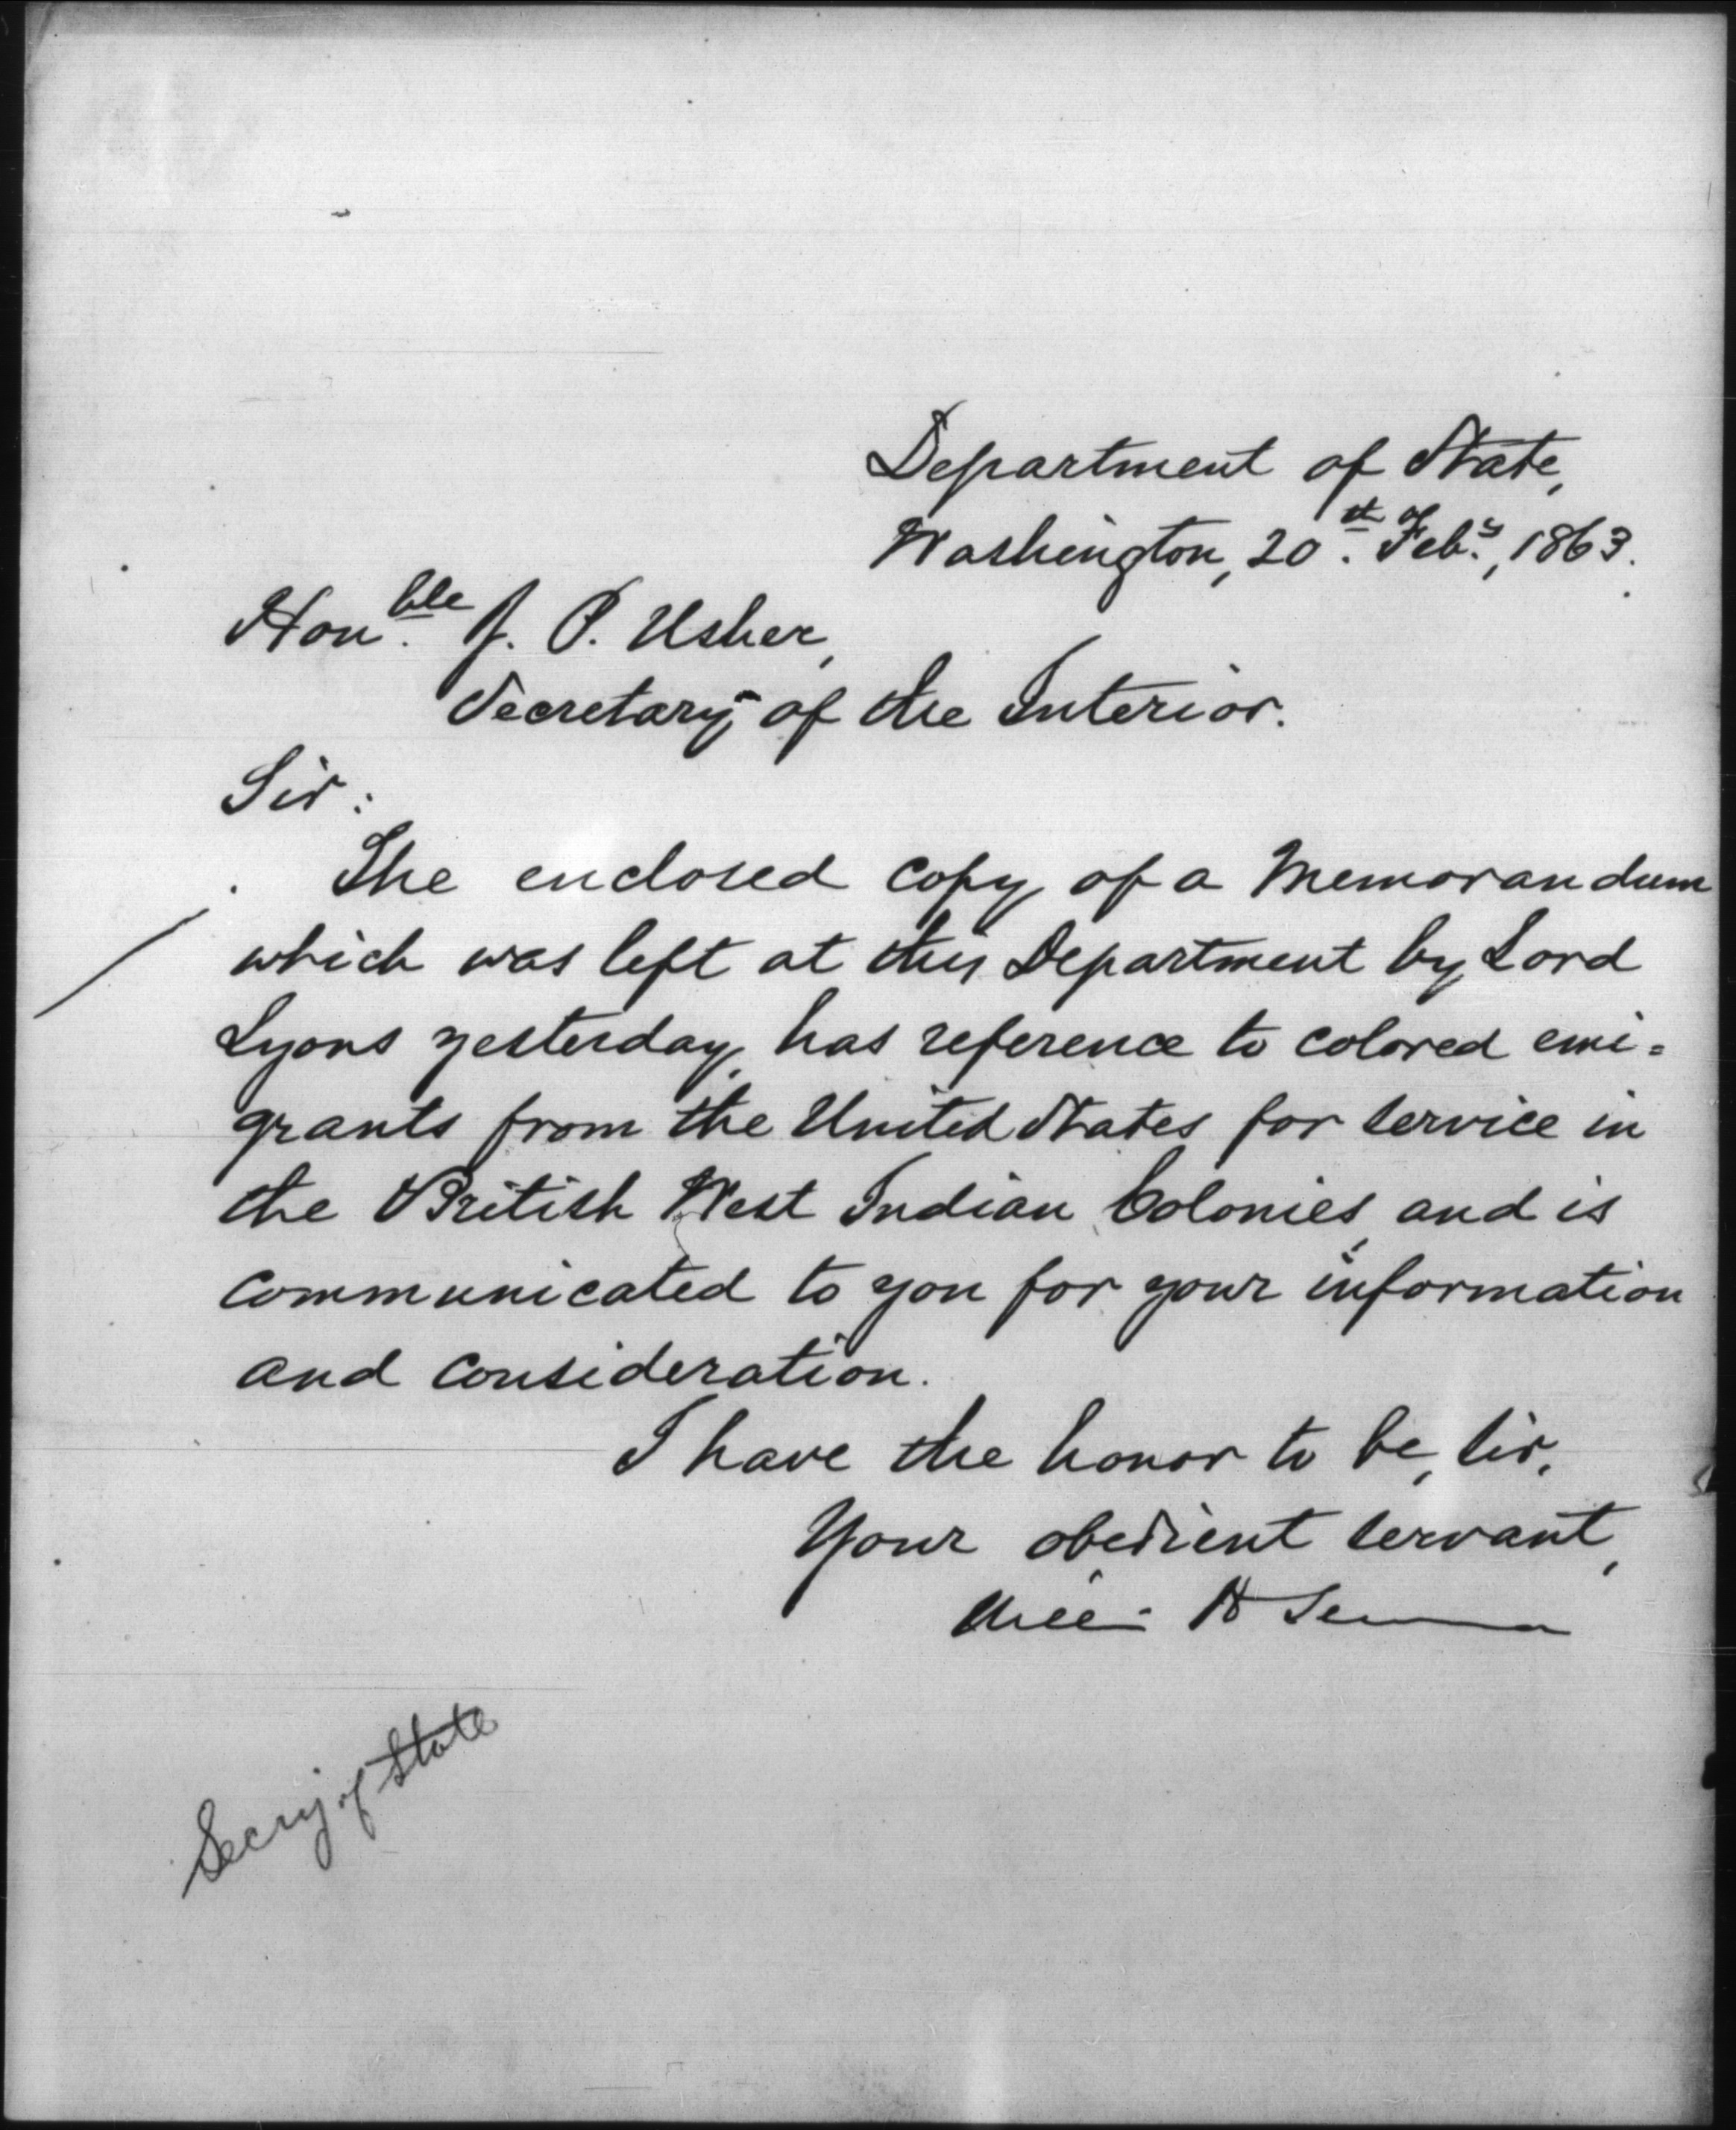 Department of State,
Washington, 20th. Feby., 1863.
Honble. J. P. Usher,
Secretary of the Interior.
Sir:
The enclosed copy of a Memorandum
which was left at this Department by Lord
Lyons yesterday, has reference to colored emi=
grants from the United States for service in
the British West Indian Colonies, and is
communicated to you for your information
and consideration.
I have the honor to be, Sir,
Your obedient servant,
H Sew
Secry of State